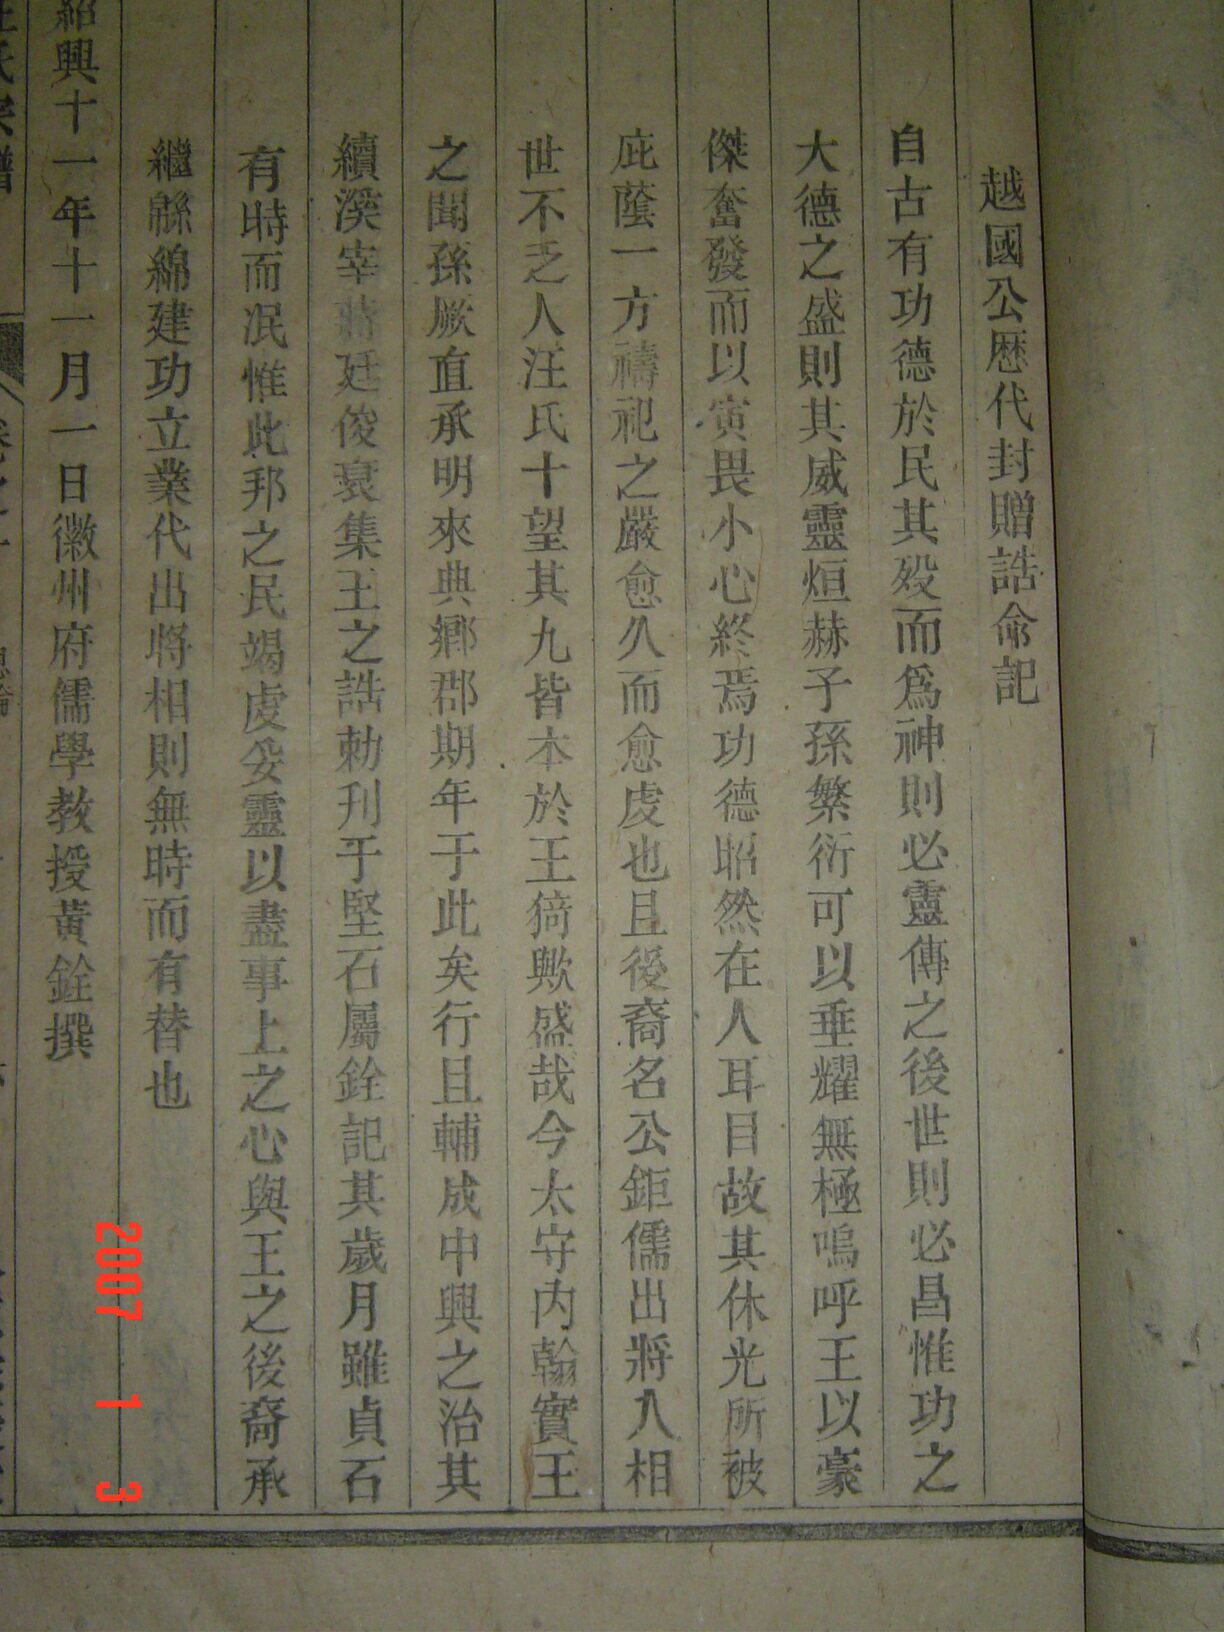 越國公歴代封贈誥命記
自古有功德於民其殁而爲神則必靈傳之後世則必昌惟功之
大德之盛則其威靈烜赫子孫繁衍可以垂耀無極嗚呼王以豪
傑奮發而以寅畏小心終焉功德昭然在人耳目故其休光所被
庇蔭一方禱祀之嚴愈久而愈虔也且後裔名公鉅儒出將入相
世不乏人汪氏十望其九皆本於王猗歟盛哉今太守内翰實王
之聞孫厥直承明來典鄉郡期年于此矣行且輔成中興之治其
續溪宰蔣廷俊裒集王之誥勅刊于堅石屬銓記其歲月雖貞石
有時而泯惟此邦之民竭虔妥靈以盡事上之心與王之後裔承
繼緜綿建功立業代出將相則無時而有替也
紹興十一年十一月一日徽州府儒學教授黃銓撰
氏宗譜
2007 1 3